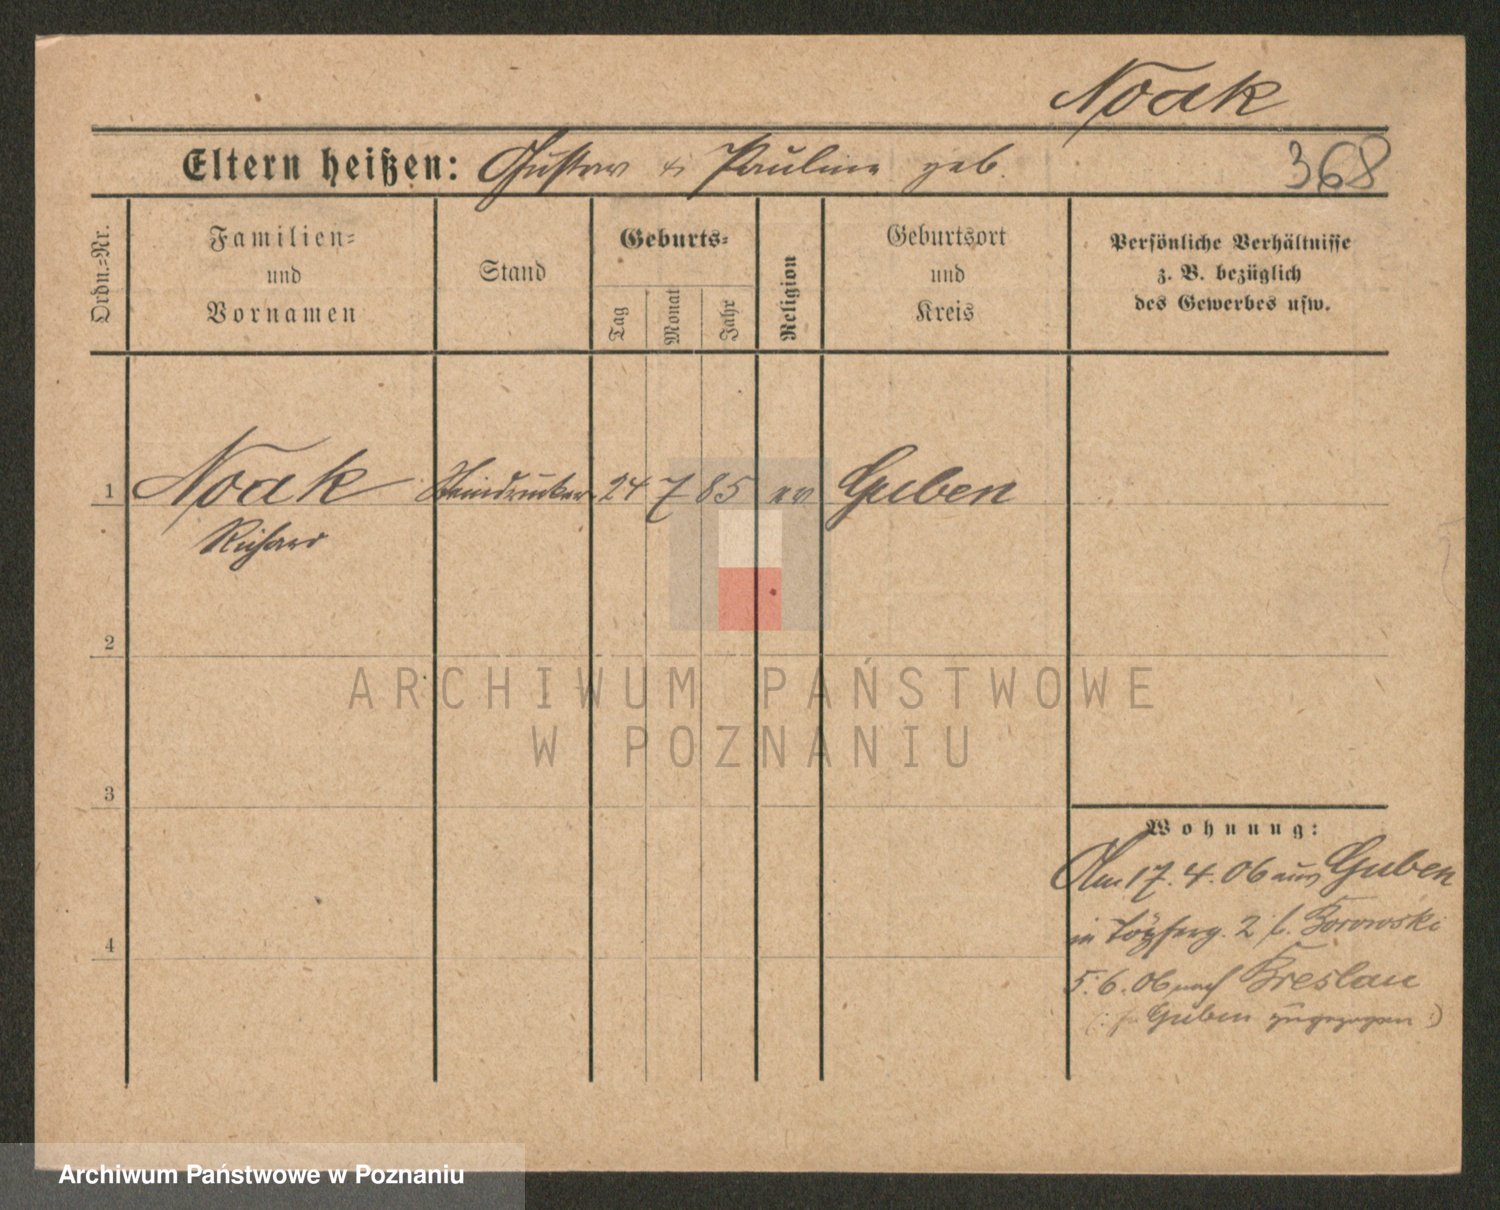 Noak
Eltern heißen: Gustav & Pauline geb.
368
Ordn.-Nr.
Familien-
und
Vornamen
Stand
Geburts-
Tag
Monat
Jahr
Religion
Geburtsort
und
Kreis
Persönliche Verhältnisse
z. B. bezüglich
des Gewerbes usw.
1 Noak Steindrucker 24 7 85 ev Guben
Richard
2
ARCHIWUM PAŃSTWOWE
W POZNANIU
3
Wohnung:
Am 17.4.06 aus Guben
in Töpferg. 2 b. Borowski
4
5.6.06 nach Breslau
Guben zugezogen :)
Archiwum Państwowe w Poznaniu